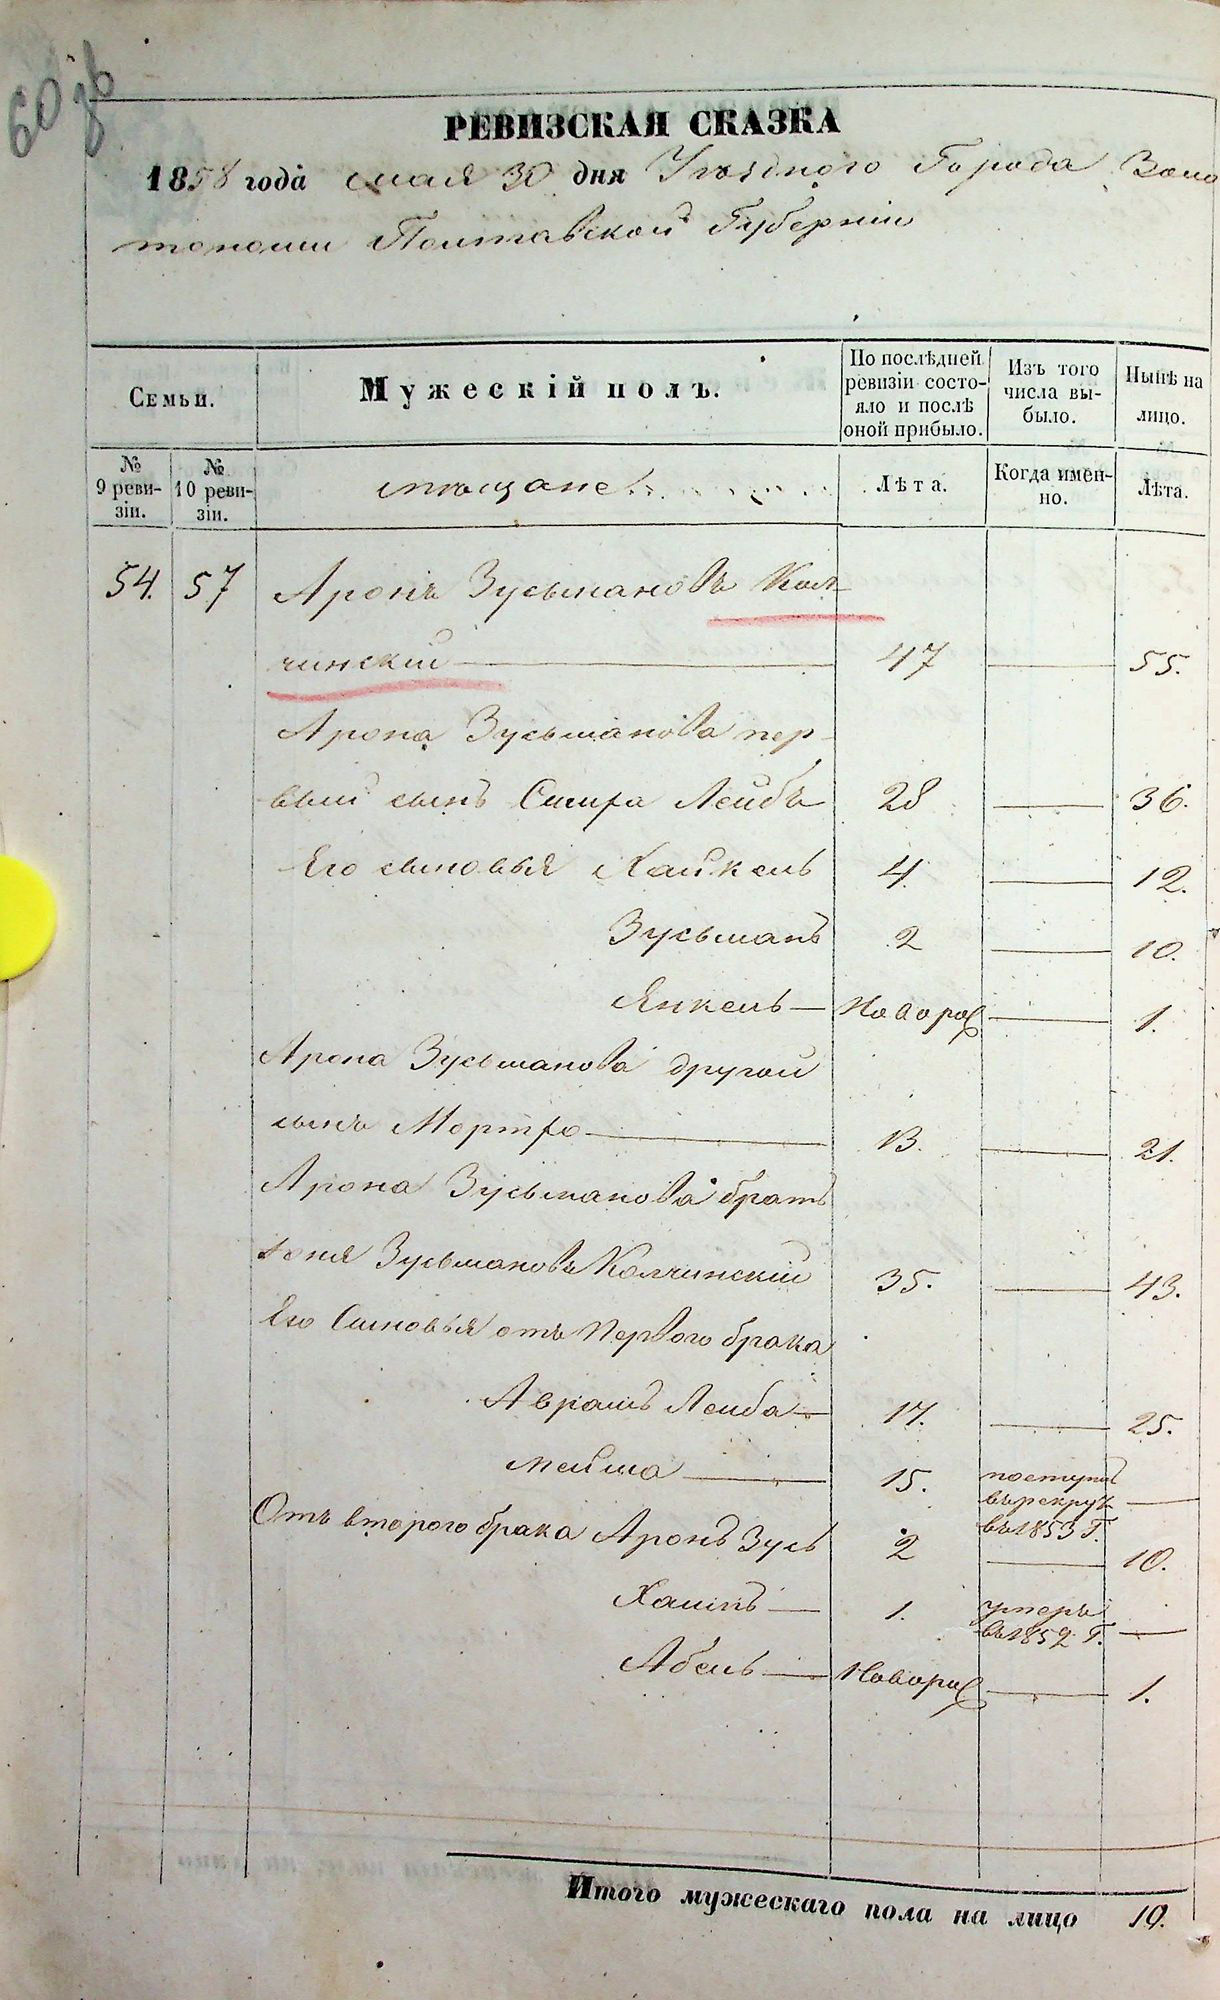 60 об
РЕВИЗСКАЯ СКАЗКА
1858 года мая 30 дня Уѣзднаго Города Золо
тоноши Полтавской Губерніи
Семьи.
Мужескій полъ.
По послѣдней ревизіи состояло и послѣ оной прибыло.
Изъ того числа выбыло.
Нынѣ на лицо.
№ 9 ревизіи.
№ 10 ревизіи.
мѣщане
Лѣта.
Когда именно.
Лѣта.
54. 57 Аронъ Зусьмановъ Кол
чинскій 47 55.
Арона Зусьманова пер
вый сынъ Лейбъ 28 36.
Его сыновья Хайкель 4. 12.
Зусьманъ 2 10.
Янкель Новорож 1.
Арона Зусьманова другой
сынъ Мортхо 13. 21.
Арона Зусьманова братъ
Зусьмановъ Колчинскій 35. 43.
Его Сыновья отъ Первого брака
Аврамъ Лейба 17. 25.
Мейша 15. поступилъ
въ рекруты
въ 1853 Г.
Отъ второго брака Аронъ Зусь 2 10.
Хаимъ 1. умеръ
въ 1852 Г.
Абель Новорож 1.
Итого мужескаго пола на лицо 10.